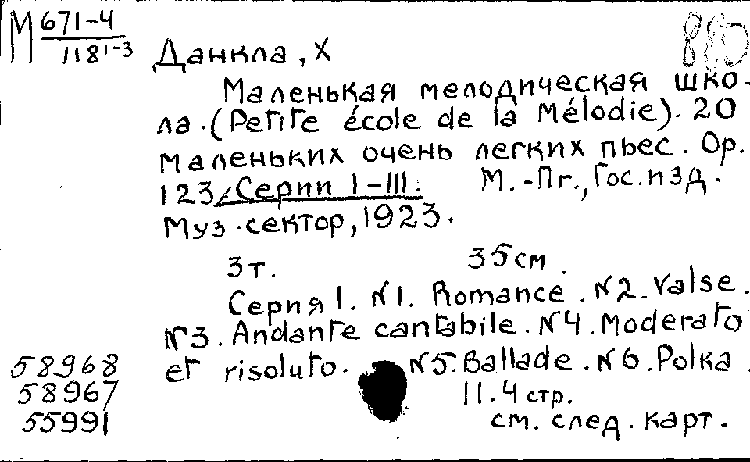 М 671-4
118 1-3
Данкла, Х
Маленькая мелодическая шко-
ла. (Petite école de la Mélodie). 20
маленьких очень легких пьес. Op.
123. Серии I-III. М.-Пг., Гос. изд.
Муз. сектор, 1923.
3 т. 35 см.
Серия I. №1. Romance. №2. Valse.
№3. Andante cantabile. №4. Moderato
et risoluto. №5. Ballade. №6. Polka.
11.4 стр.
см. след. карт.
58968
58967
55991